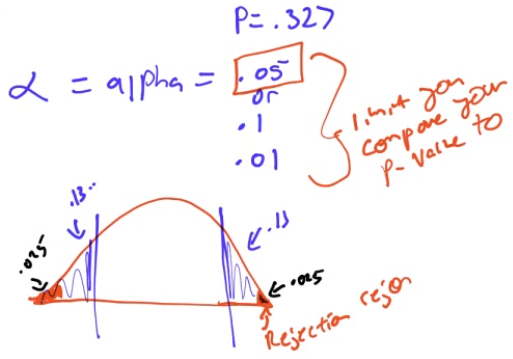 P=.327
α = alpha = .05
or
.1
.01
limit you
compare your
P-value to
.13..
.13
.025
.025
Rejection region